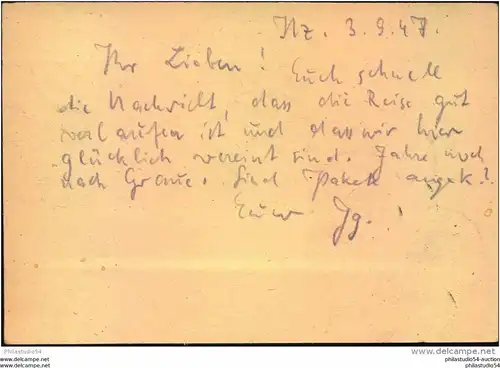 Nz. 3.9.47.
Ihr Lieben! Euch schnell
die Nachricht, dass die Reise gut
verlaufen ist und dass wir hier
glücklich vereint sind. Fahre noch
nach Sind Pakete angek.?
Euer Jg.
Philastudio54
www.philastudio54.com
Philastudio54-auction
philastudio54.com